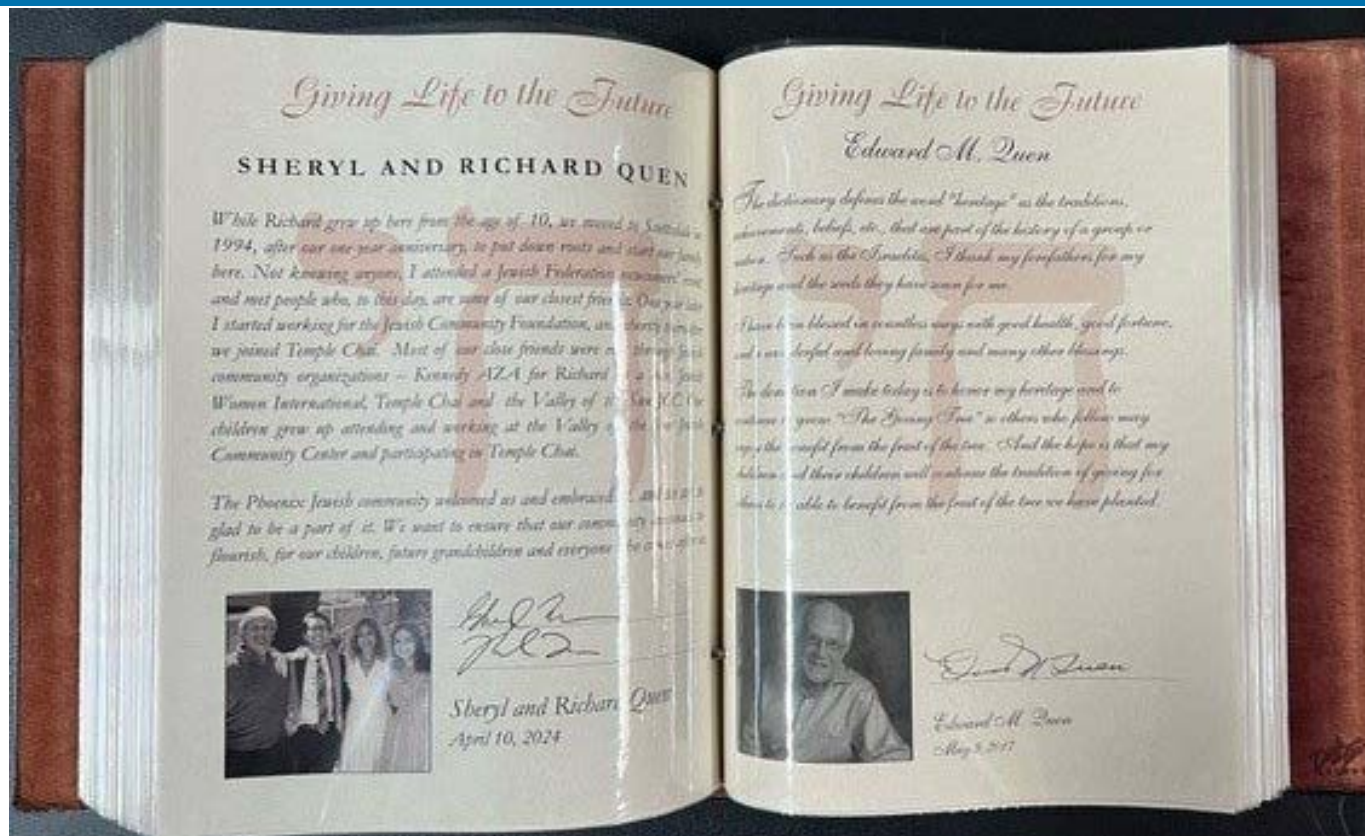 Giving Life to the Future
SHERYL AND RICHARD QUEN
While Richard grew up here from the age of 10, we moved to Scottsdale in
1994, after our one year anniversary, to put down roots and start our family
here. Not knowing anyone, I attended a Jewish Federation newcomers' event
and met people who, to this day, are some of our closest friends. One year later
I started working for the Jewish Community Foundation, and shortly
we joined Temple Chai. Most of our close friends were met through Jewish
community organizations – Kennedy AZA for Richard Jewish
Women International, Temple Chai and the Valley of the Sun JCC. Our
children grew up attending and working at the Valley of the Sun Jewish
Community Center and participating in Temple Chai.
The Phoenix Jewish community welcomed us and embraced us, and
glad to be a part of it. We want to ensure that our community continues to
flourish, for our children, future grandchildren and everyone
Sheryl and Richard Quen
April 10, 2024
Giving Life to the Future
Edward M. Quen
The dictionary defines the word "heritage" as the traditions,
achievements, beliefs, etc., that are part of the history of a group or
nation. Such as the Israelites, I thank my forefathers for my
heritage and the seeds they have sown for me.
I have been blessed in countless ways with good health, good fortune,
and a wonderful and loving family and many other blessings.
The donation I make today is to honor my heritage and to
continue to grow "The Giving Tree" so others who follow may
enjoy the benefit from the fruit of the tree. And the hope is that my
children and their children will continue the tradition of giving for
others to be able to benefit from the fruit of the tree we have planted.
Edward M. Quen
May 9, 2017
חי
חי